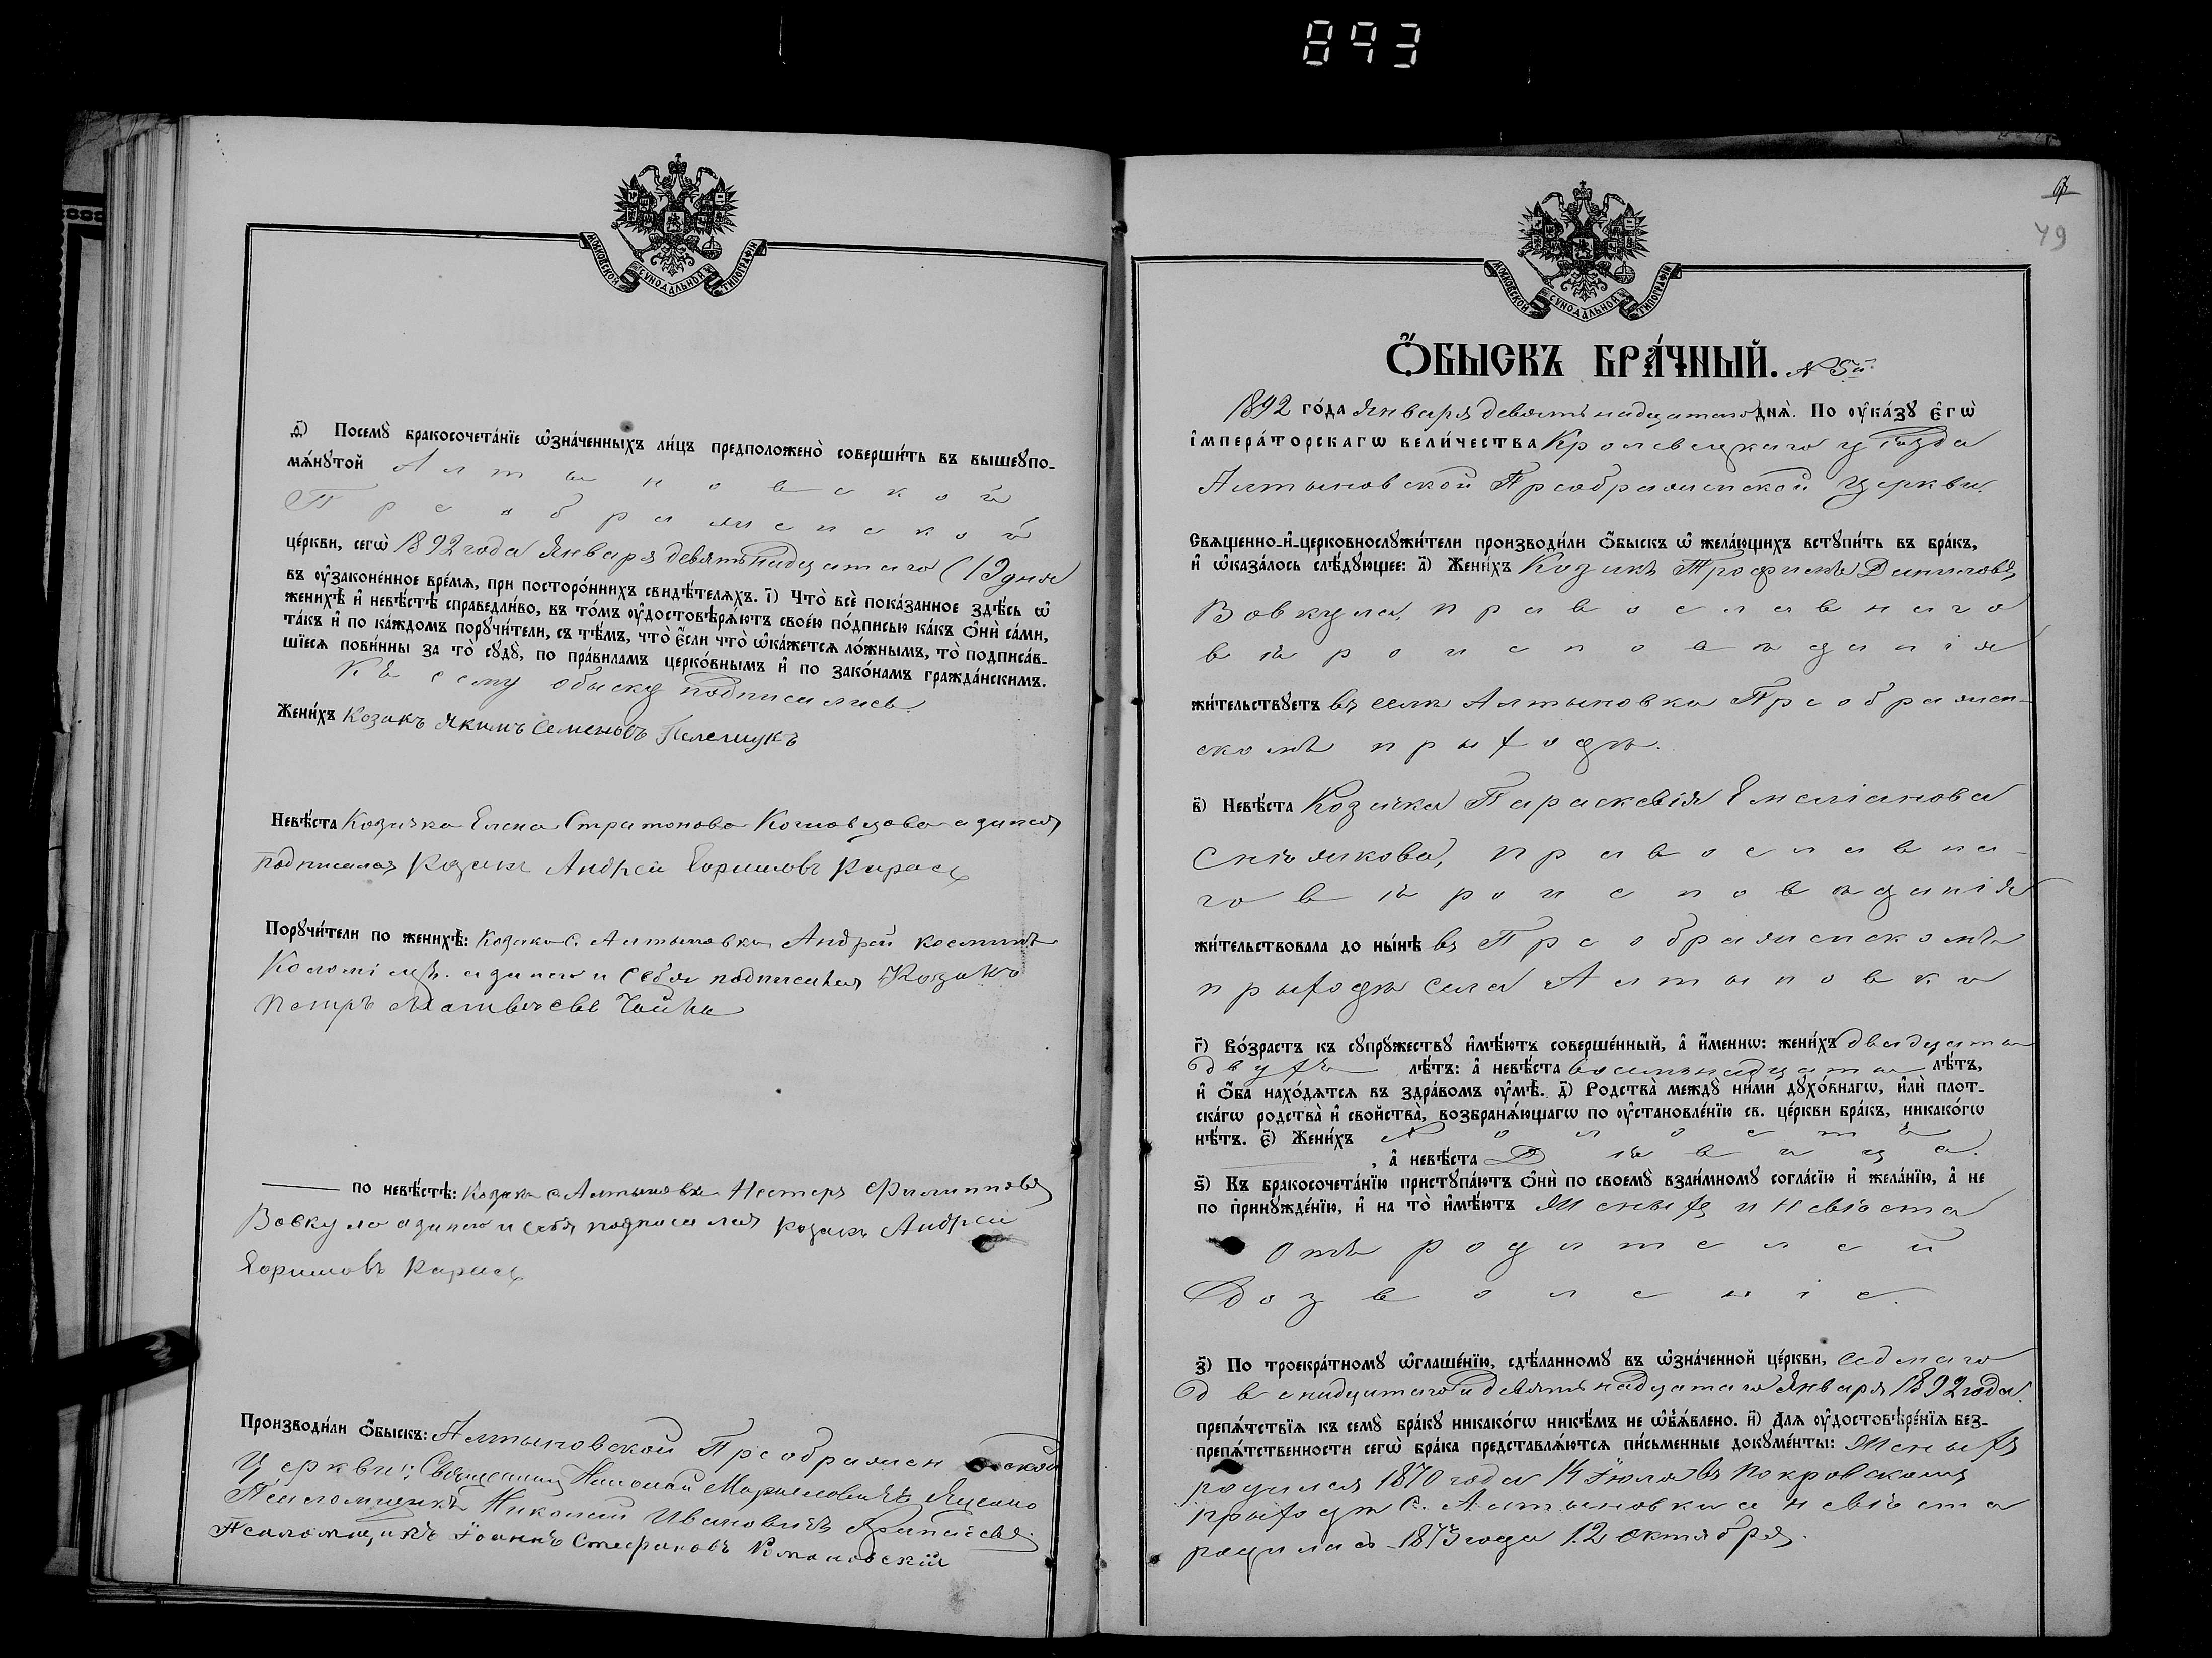 893
МОСКОВСКОЙ СУНОДАЛЬНОЙ ТИПОГРАФІИ
д҃) Посемꙋ̀ бракосочета́нїе ѡ҆зна́ченныхъ ли́цъ предположено̀ соверши́ть въ вышеꙋпо-
мѧ́нꙋтой Алтыновской
Преображенской
це́ркви, сегѡ̀ 1892 года Января девятнадцатаго (19 дня
въ ᲂу҆законе́нное вре́мѧ, при посторо́ннихъ свидѣ́телѧхъ. і҃) Что̀ всѐ пока́занное здѣ́сь ѡ҆
женихѣ̀ и҆ невѣ́стѣ справедли́во, въ то́мъ ᲂу҆достовѣрѧ́ютъ свое́ю по́дписью ка́къ ѻ҆нѝ са́ми,
та́къ и҆ по ка́ждомъ порꙋчи́тели, съ тѣ́мъ, что̀ є҆́сли что̀ ѡ҆ка́жетсѧ ло́жнымъ, то̀ подписа́в-
шїесѧ пови́нны за то̀ сꙋдꙋ̀, по пра́виламъ церко́внымъ и҆ по зако́намъ гражда́нскимъ.
Къ сему обыску подписались
Жени́хъ Козакъ Якимъ Семеновъ Пелешукъ
Невѣ́ста Козачка Елена Стратонова а за нея
подписался Козакъ Андрей Карась
Порꙋчи́тели по женихѣ̀: Козаки с. Алтыновки Андрей Косминъ
Коломіецъ. а за него и себя подписался Козакъ
Петръ Матвѣевъ Чайка
по невѣ́стѣ: Козакъ с. Алтыновки Нестеръ Филипповъ
Вовкула а за него и себя подписался козакъ Андрей
Карась
Производи́ли ѻ҆́быскъ: Алтыновской Преображенской
Церкви: Священникъ Николай Яценко
Псаломщикъ Николай Ивановичъ
Псаломщикъ Іоаннъ Стефановъ Романовскій
49
МОСКОВСКОЙ СУНОДАЛЬНОЙ ТИПОГРАФІИ
Ѻ҆́БЫСКЪ БРА́ЧНЫЙ. № 5й.
1892 го́да Января девятнадцатаго днѧ̀. По ᲂу҆ка́зꙋ є҆гѡ̀
і҆мпера́торскагѡ вели́чества Кролевецкаго уѣзда
Алтыновской Преображенской Церкви.
Свѧщенно-и҆-церковнослꙋжи́тели производи́ли ѻ҆́быскъ ѡ҆ жела́ющихъ встꙋпи́ть въ бра́къ,
и҆ ѡ҆каза́лось слѣ́дꙋющее: а҃) Жени́хъ Козакъ Трофимъ Даниловъ
Вовкула, православнаго
вѣроисповѣданія
жи́тельствꙋетъ въ селѣ Алтыновка Преображен-
скомъ приходѣ.
в҃) Невѣ́ста Козачка Параскевія Емеліанова
Снѣжкова, православна-
го вѣроисповѣданія
жи́тельствовала до ны́нѣ въ Преображенскомъ
приходѣ села Алтыновки
г҃) Во́зрастъ къ сꙋпрꙋ́жествꙋ и҆мѣ́ютъ соверше́нный, а҆ и҆́меннѡ: жени́хъ двадцати
двухъ лѣ́тъ: а҆ невѣ́ста восемнадцати лѣ́тъ,
и҆ ѻ҆́ба нахо́дѧтсѧ въ здра́вомъ ᲂу҆мѣ̀. д҃) Родства̀ междꙋ̀ ни́ми дꙋхо́внагѡ, и҆лѝ плот-
ска́гѡ родства̀ и҆ свойства̀, возбранѧ́ющагѡ по ᲂу҆становле́нїю св. це́ркви бра́къ, никако́гѡ
нѣ́тъ. є҃) Жени́хъ Холостъ
, а҆ невѣ́ста Дѣвица.
ѕ҃) Къ бракосочета́нїю пристꙋпа́ютъ ѻ҆нѝ по своемꙋ̀ взаи́мномꙋ согла́сїю и҆ жела́нїю, а҆ не
по принꙋжде́нїю, и҆ на то̀ и҆мѣ́ютъ Женихъ и Невѣста
отъ родителей
дозволеніе.
з҃) По троекра́тномꙋ ѡ҆глаше́нїю, сдѣ́ланномꙋ въ ѡ҆зна́ченной це́ркви, седмаго
двенадцатаго и девятнадцатаго Января 1892 года.
препѧ́тствїѧ къ семꙋ̀ бра́кꙋ никако́гѡ никѣ́мъ не ѡ҆б̾ѧ́влено. и҃) Длѧ ᲂу҆достовѣре́нїѧ без-
препѧ́тственности сегѡ̀ бра́ка представлѧ́ютсѧ пи́сьменные докꙋме́нты: Женихъ
родился 1870 года 14 Іюля въ Покровскомъ
приходѣ с. Алтыновки а невѣста
родилась 1873 года 12 октября.